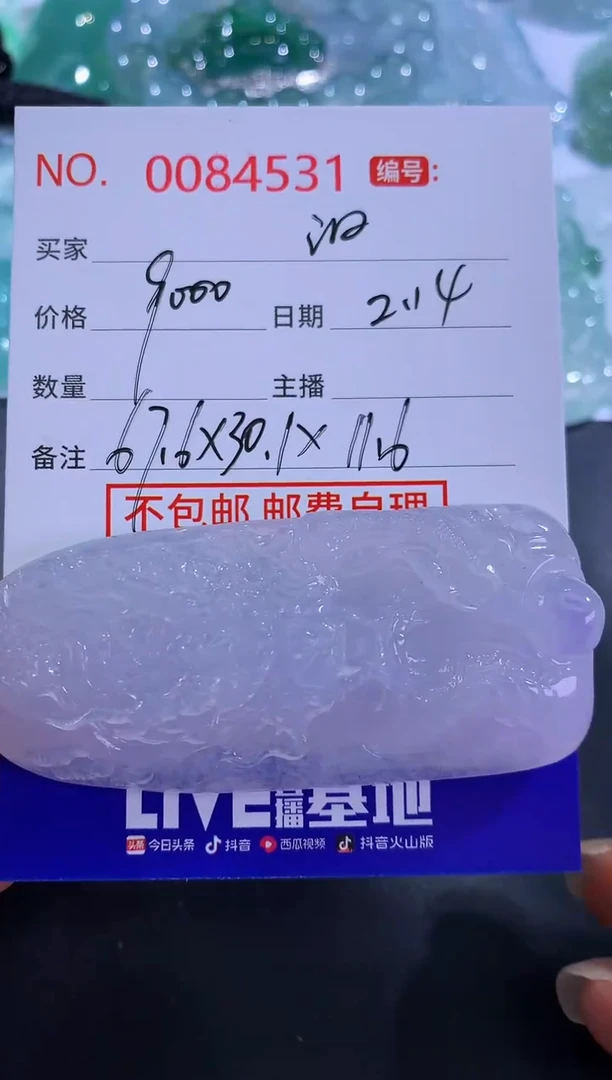 NO. 0084531 编号:
买家
价格 9000 日期 2.14
数量 主播
备注 67.6×30.1×11.6
不包邮 邮费自理
LIVE直播基地
头条 今日头条 抖音 西瓜视频 抖音火山版